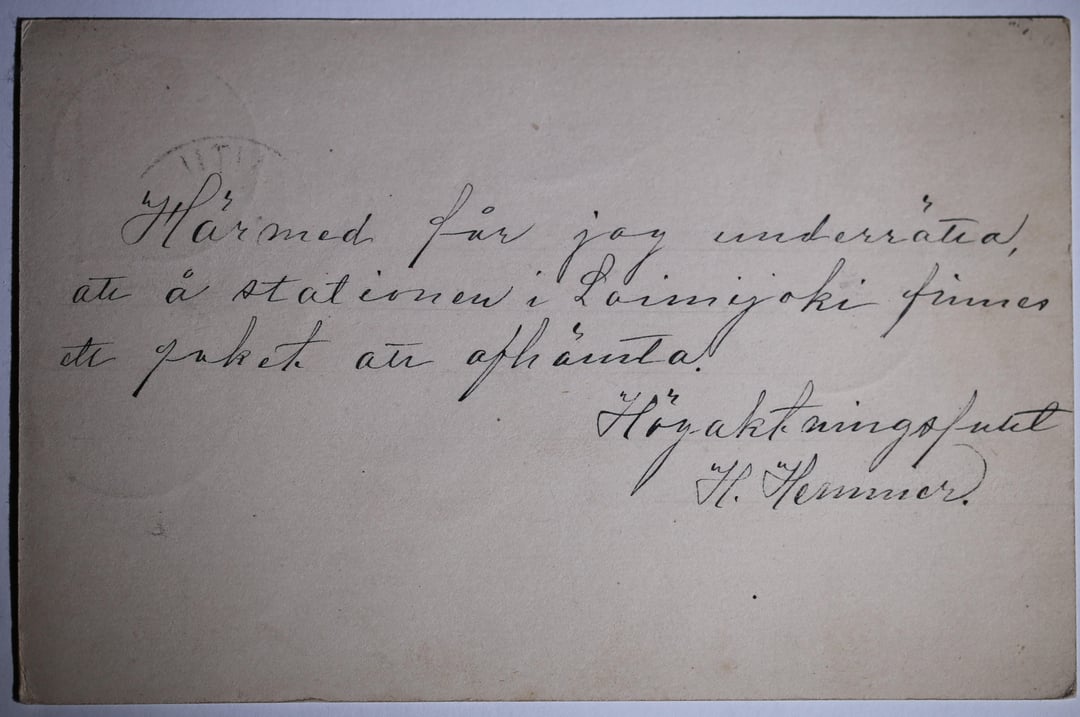 Härmed får jag underrätta,
att å stationen i Loimijoki finnes
ett paket att afhämta.
Högaktningsfullt
H. Hemmer.